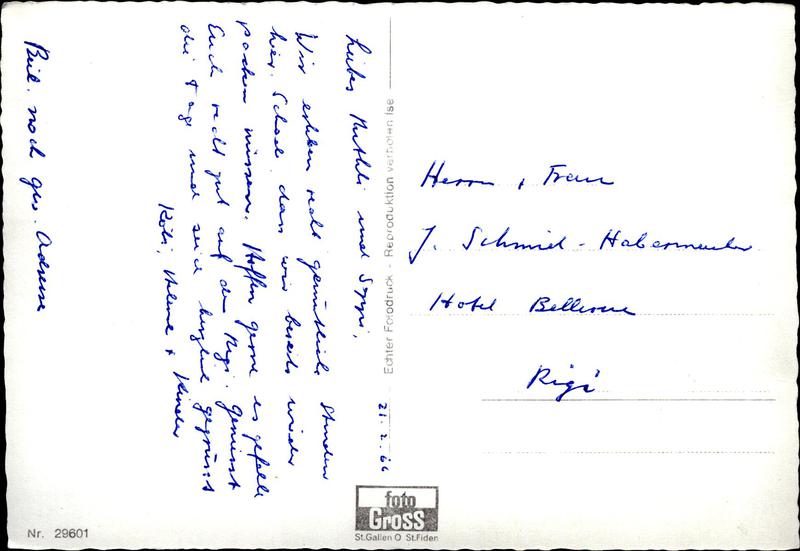 21.2.66
Liebes Ruthli und Seppi,
Wir erleben recht gemütliche Stunden
hier. Schade, dass wir bereits wieder
packen müssen. Hoffen gerne es gefalle
Euch recht gut auf der Rigi. Geniesst
die Tage und seid herzlich gegrüsst
Köbi, + Kinder
Beil. noch gew. Adresse
Echter Fotodruck - Reproduktion verboten Ise
Herrn + Frau
J. Schmid - Habermacher
Hotel Bellevue
Rigi
foto
Gross
St.Gallen O St.Fiden
Nr. 29601